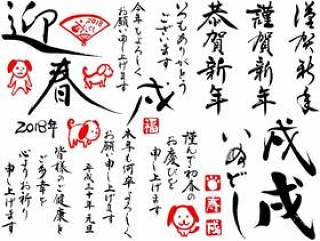 謹賀新年
謹賀新年
恭賀新年
いつもありがとう
ございます
今年もよろしく
お願い申し上げます
迎春
2018
戌
福
戌戌
いぬどし
謹んで初春の
お慶びを
申し上げます
春
戌
本年も何卒よろしく
お願い申し上げます
平成三十年 元旦
皆様のご健康と
ご多幸を
心よりお祈り
申し上げます
2018年